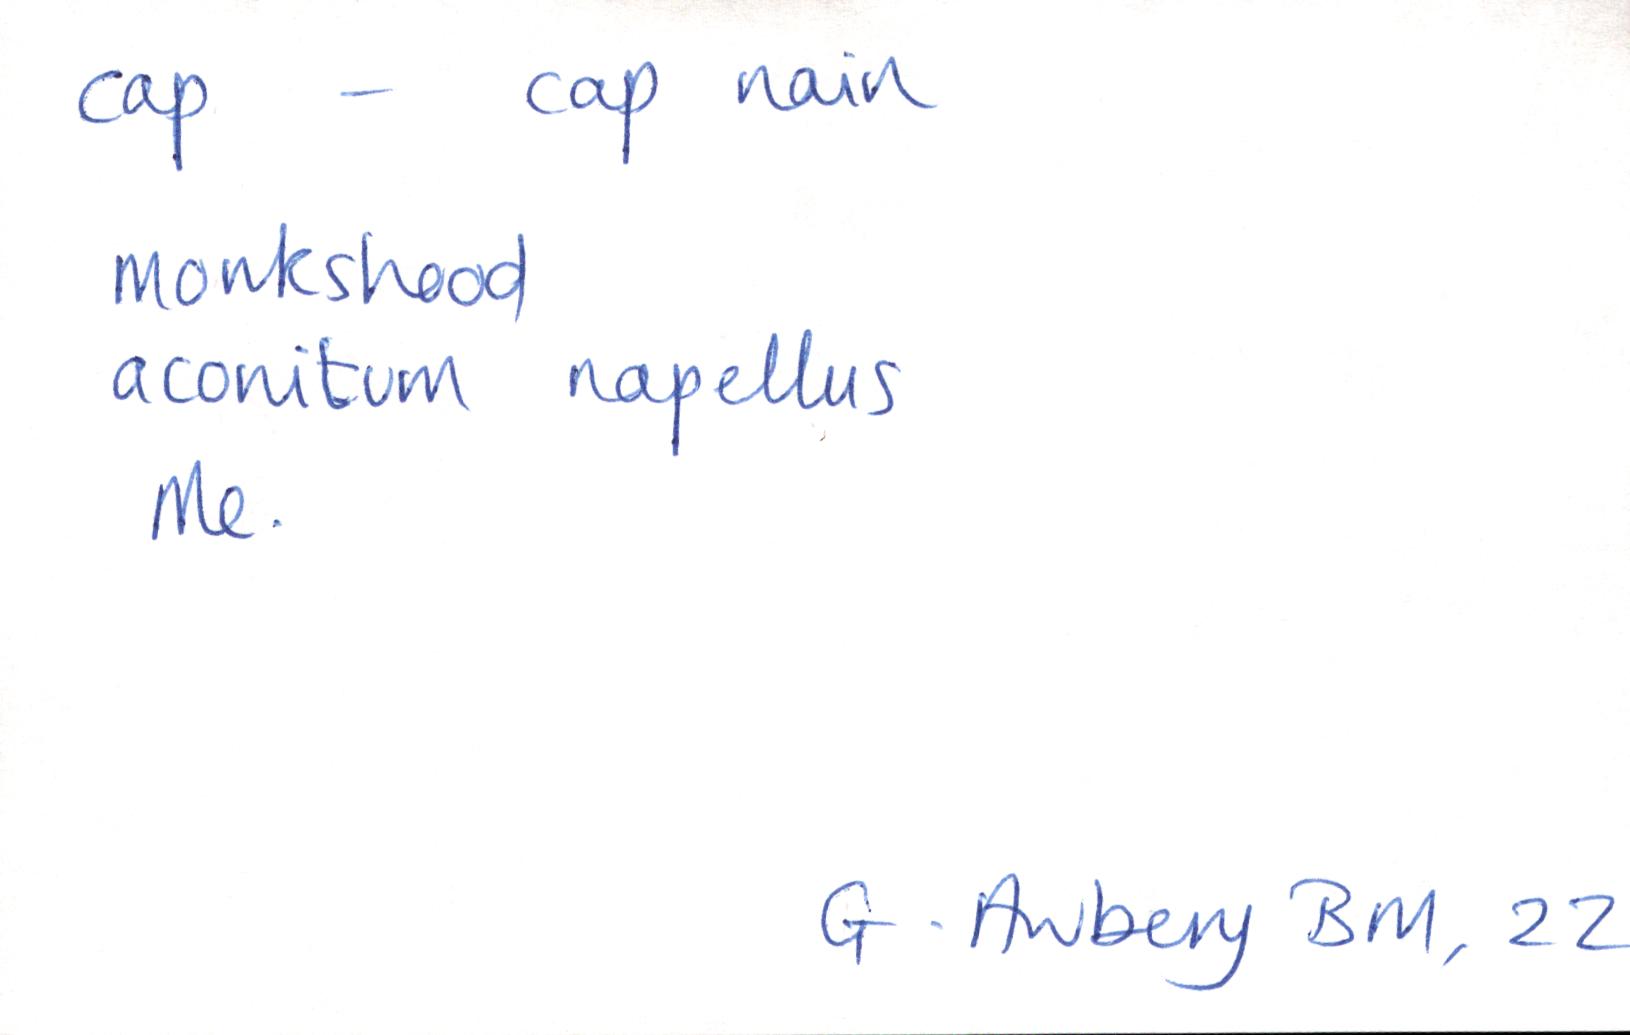 cap - cap nain
monkshood
aconitum napellus
Me.
G. Awbery BM, 22